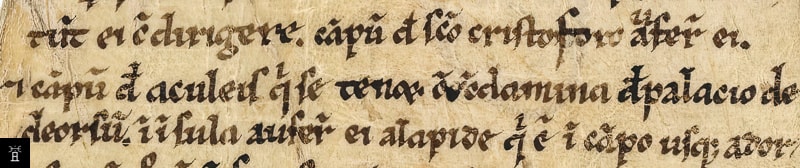 tūt ei ꝯdirigere. cāpū đ sc̄o cristoforo aufer̄ ei.
i cāpū đ aculeis q̇ se tenꝫ c̄ ꝯdamina đ palacio de
deorsū. ī īsula aufer̄ ei alapide q̇ ē ī cāpo usqꝫ ador